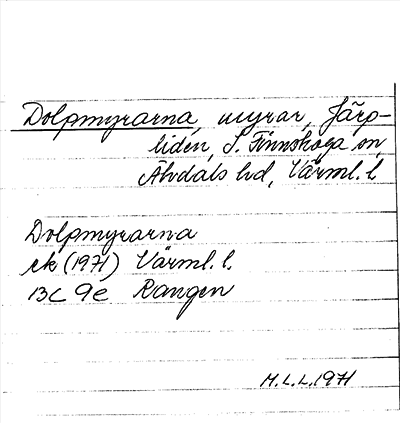 Dolpmyrarna, myrar, Järp-
liden, S. Finnskoga sn,
Älvdals hd, Värml. l.
Dolpmyrarna
ek (1971) Värml. l.
13C 9e Rangen
M.L.L. 1971